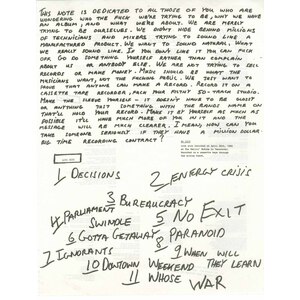 THIS NOTE IS DEDICATED TO ALL THOSE OF YOU WHO ARE
WONDERING WHO THE FUCK WE'RE TRYING TO BE, WHY WE HAVE
AN ALBUM, AND WHAT WE'RE ABOUT. WE ARE MERELY
TRYING TO BE OURSELVES. WE DIDN'T HIDE BEHIND MILLIONS
OF TECHNICIANS AND MIXERS TRYING TO SOUND LIKE A
MANUFACTURED PRODUCT. WE WANT TO SOUND NATURAL, WHAT
WE REALLY SOUND LIKE. IF YOU DON'T LIKE IT YOU CAN PISS
OFF. GO DO SOMETHING YOURSELF RATHER THAN COMPLAIN
ABOUT US OR ANYBODY ELSE. WE ARE NOT TRYING TO SELL
RECORDS OR MAKE MONEY. MUSIC SHOULD BE WHAT THE
MUSICIANS WANT, NOT THE FUCKING PUBLIC. WE JUST WANT TO
PROVE THAT ANYONE CAN MAKE A RECORD. RECORD IT ON A
CASSETTE TAPE RECORDER,
MAKE THE SLEEVE YOURSELF - IT DOESN'T HAVE TO BE GLOSSY
OR ANYTHING JUST SOMETHING WITH THE BANDS NAME ON
THAT'LL HOLD YOUR RECORD. MAKE IT BY YOURSELF AS MUCH AS
POSSIBLE IT'LL HAVE MUCH MORE OF YOU IN IT AND THE
MESSAGE WILL BE MUCH CLEARER. I MEAN, HOW CAN YOU
TAKE SOMEONE SERIOUSLY IF THEY HAVE A MILLION DOLLAR
BIG TIME RECORDING CONTRACT?
1 DECISIONS
2 ENERGY CRISIS
3 BUREAUCRACY
4 PARLIAMENT SWINDLE
5 NO EXIT
6 GOTTA GETAWAY
8 PARANOID
7 IGNORANTS
9 WHEN WILL THEY LEARN
10 DOWTOWN WEEKEND
11 WHOSE WAR